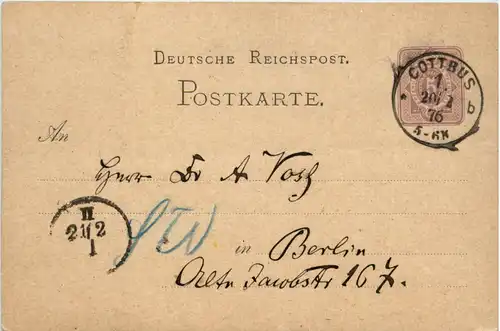 DEUTSCHE REICHSPOST.
POSTKARTE.
COTTBUS
1
20/2
76
5-6N
* b
An
Herrn Dr A Voss
SW
II
21/2
I
in Berlin
Alte Jacobstr 167.